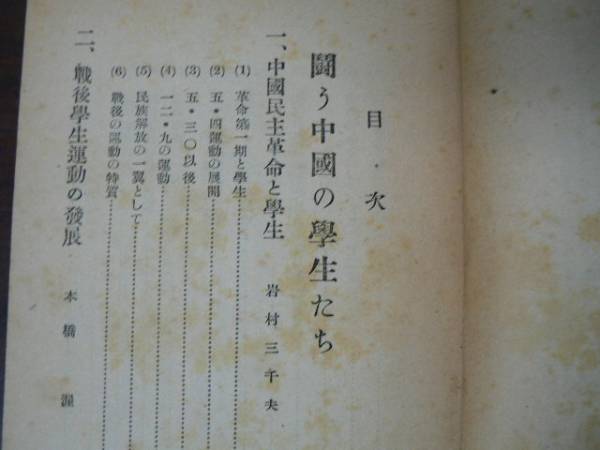 目次
闘う中國の學生たち
一、中國民主革命と學生 岩村三千夫
(1) 革命第一期と學生
(2) 五・四運動の展開
(3) 五・三〇以後
(4) 一二・九の運動
(5) 民族解放の一翼として
(6) 戰後の運動の特質
二、戰後學生運動の發展 本橋渥